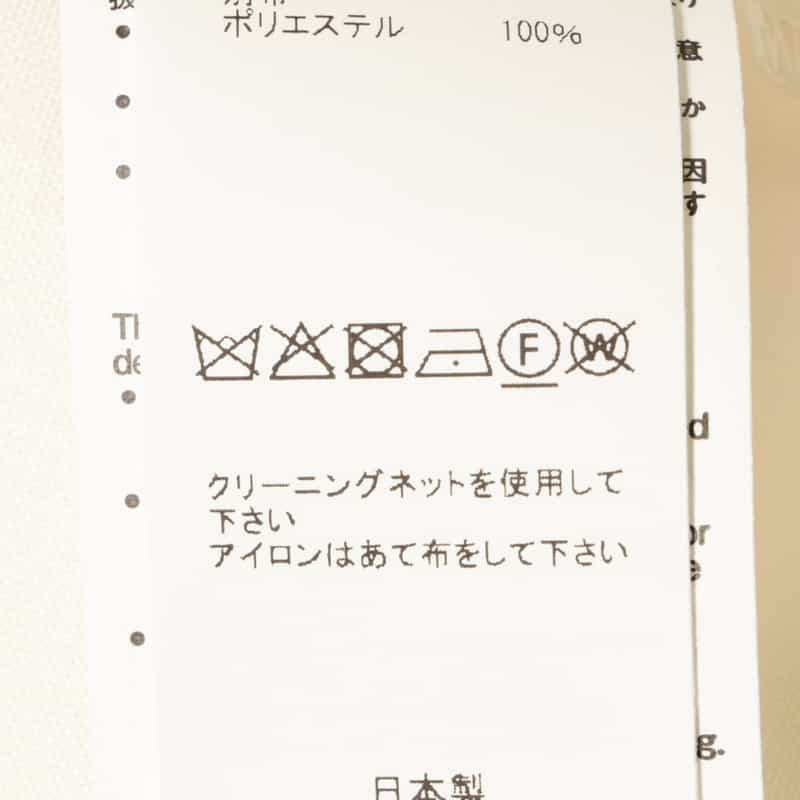 ポリエステル 100%
F
W
クリーニングネットを使用して
下さい
アイロンはあて布をして下さい
日本製
意
か
因
す
Th
de
d
or
e
g.